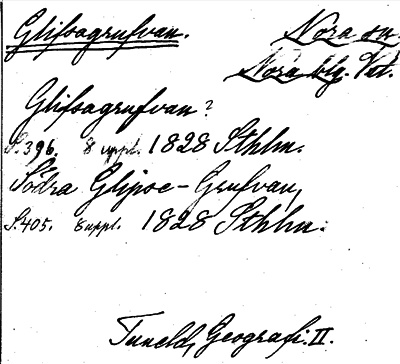 Glifsagrufvan. Nora sn.
Nora blg. Vstm.
Glifsagrufvan?
S. 396. 8 uppl. 1828 Sthlm.
Södra Glisse-Grufvan,
S. 405. 8 uppl. 1828 Sthlm.
Tuneld, Geografi. II.